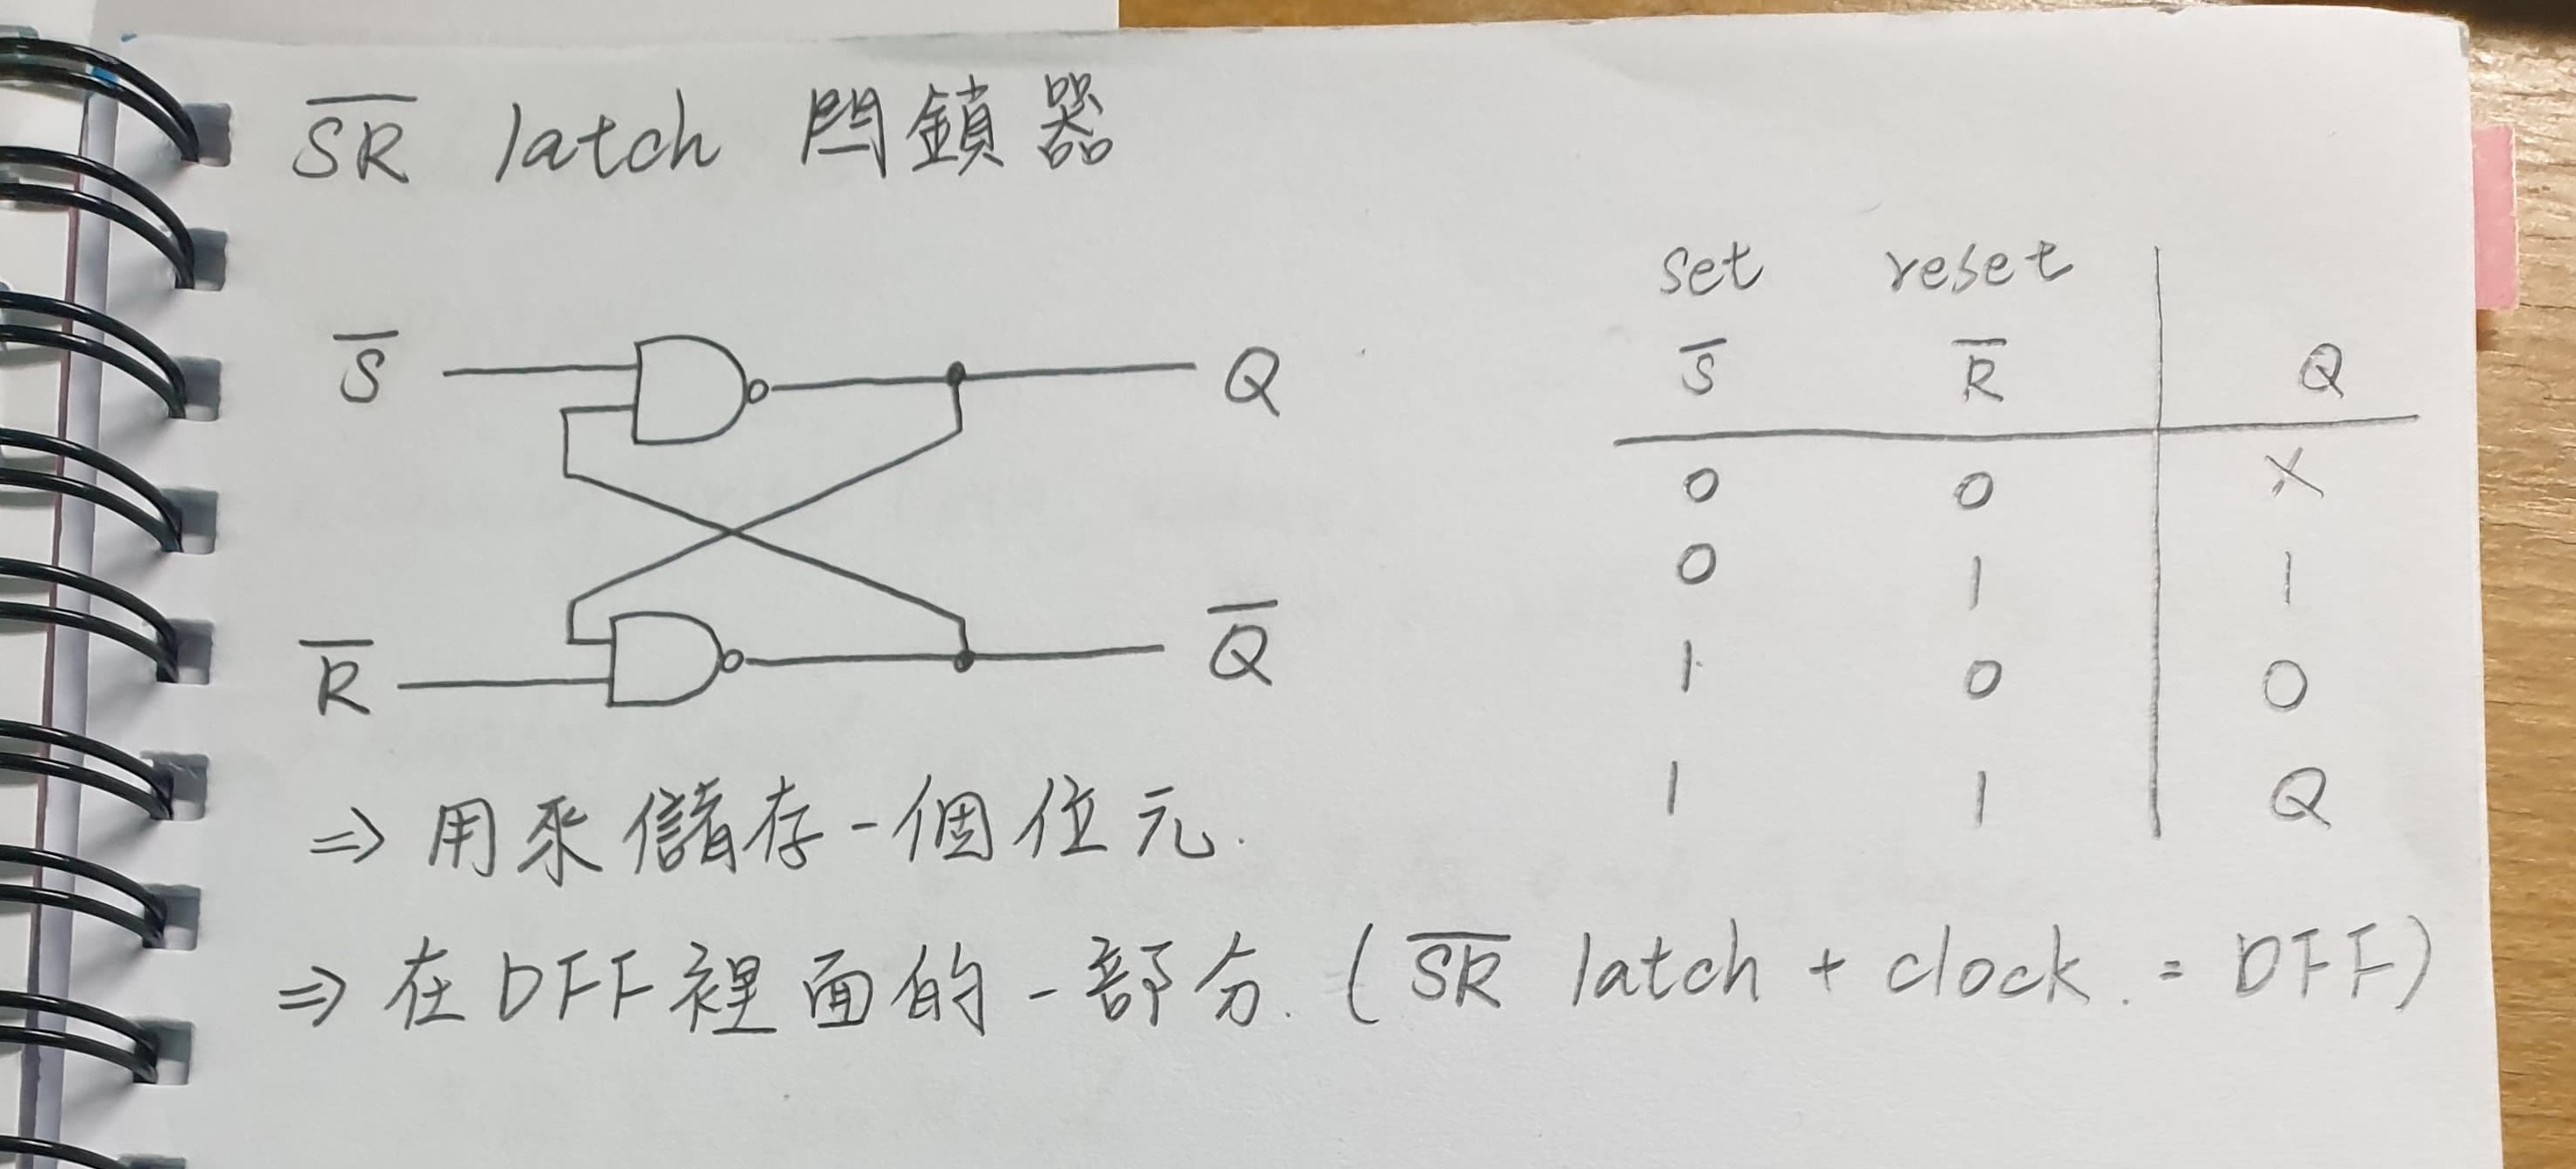 S̅R̅ latch 閂鎖器
S̅ Q
R̅ Q̅
set reset
S̅ R̅ Q
0 0 X
0 1 1
1 0 0
1 1 Q
⇒ 用來儲存一個位元.
⇒ 在DFF裡面的一部分. ( S̅R̅ latch + clock . = DFF)